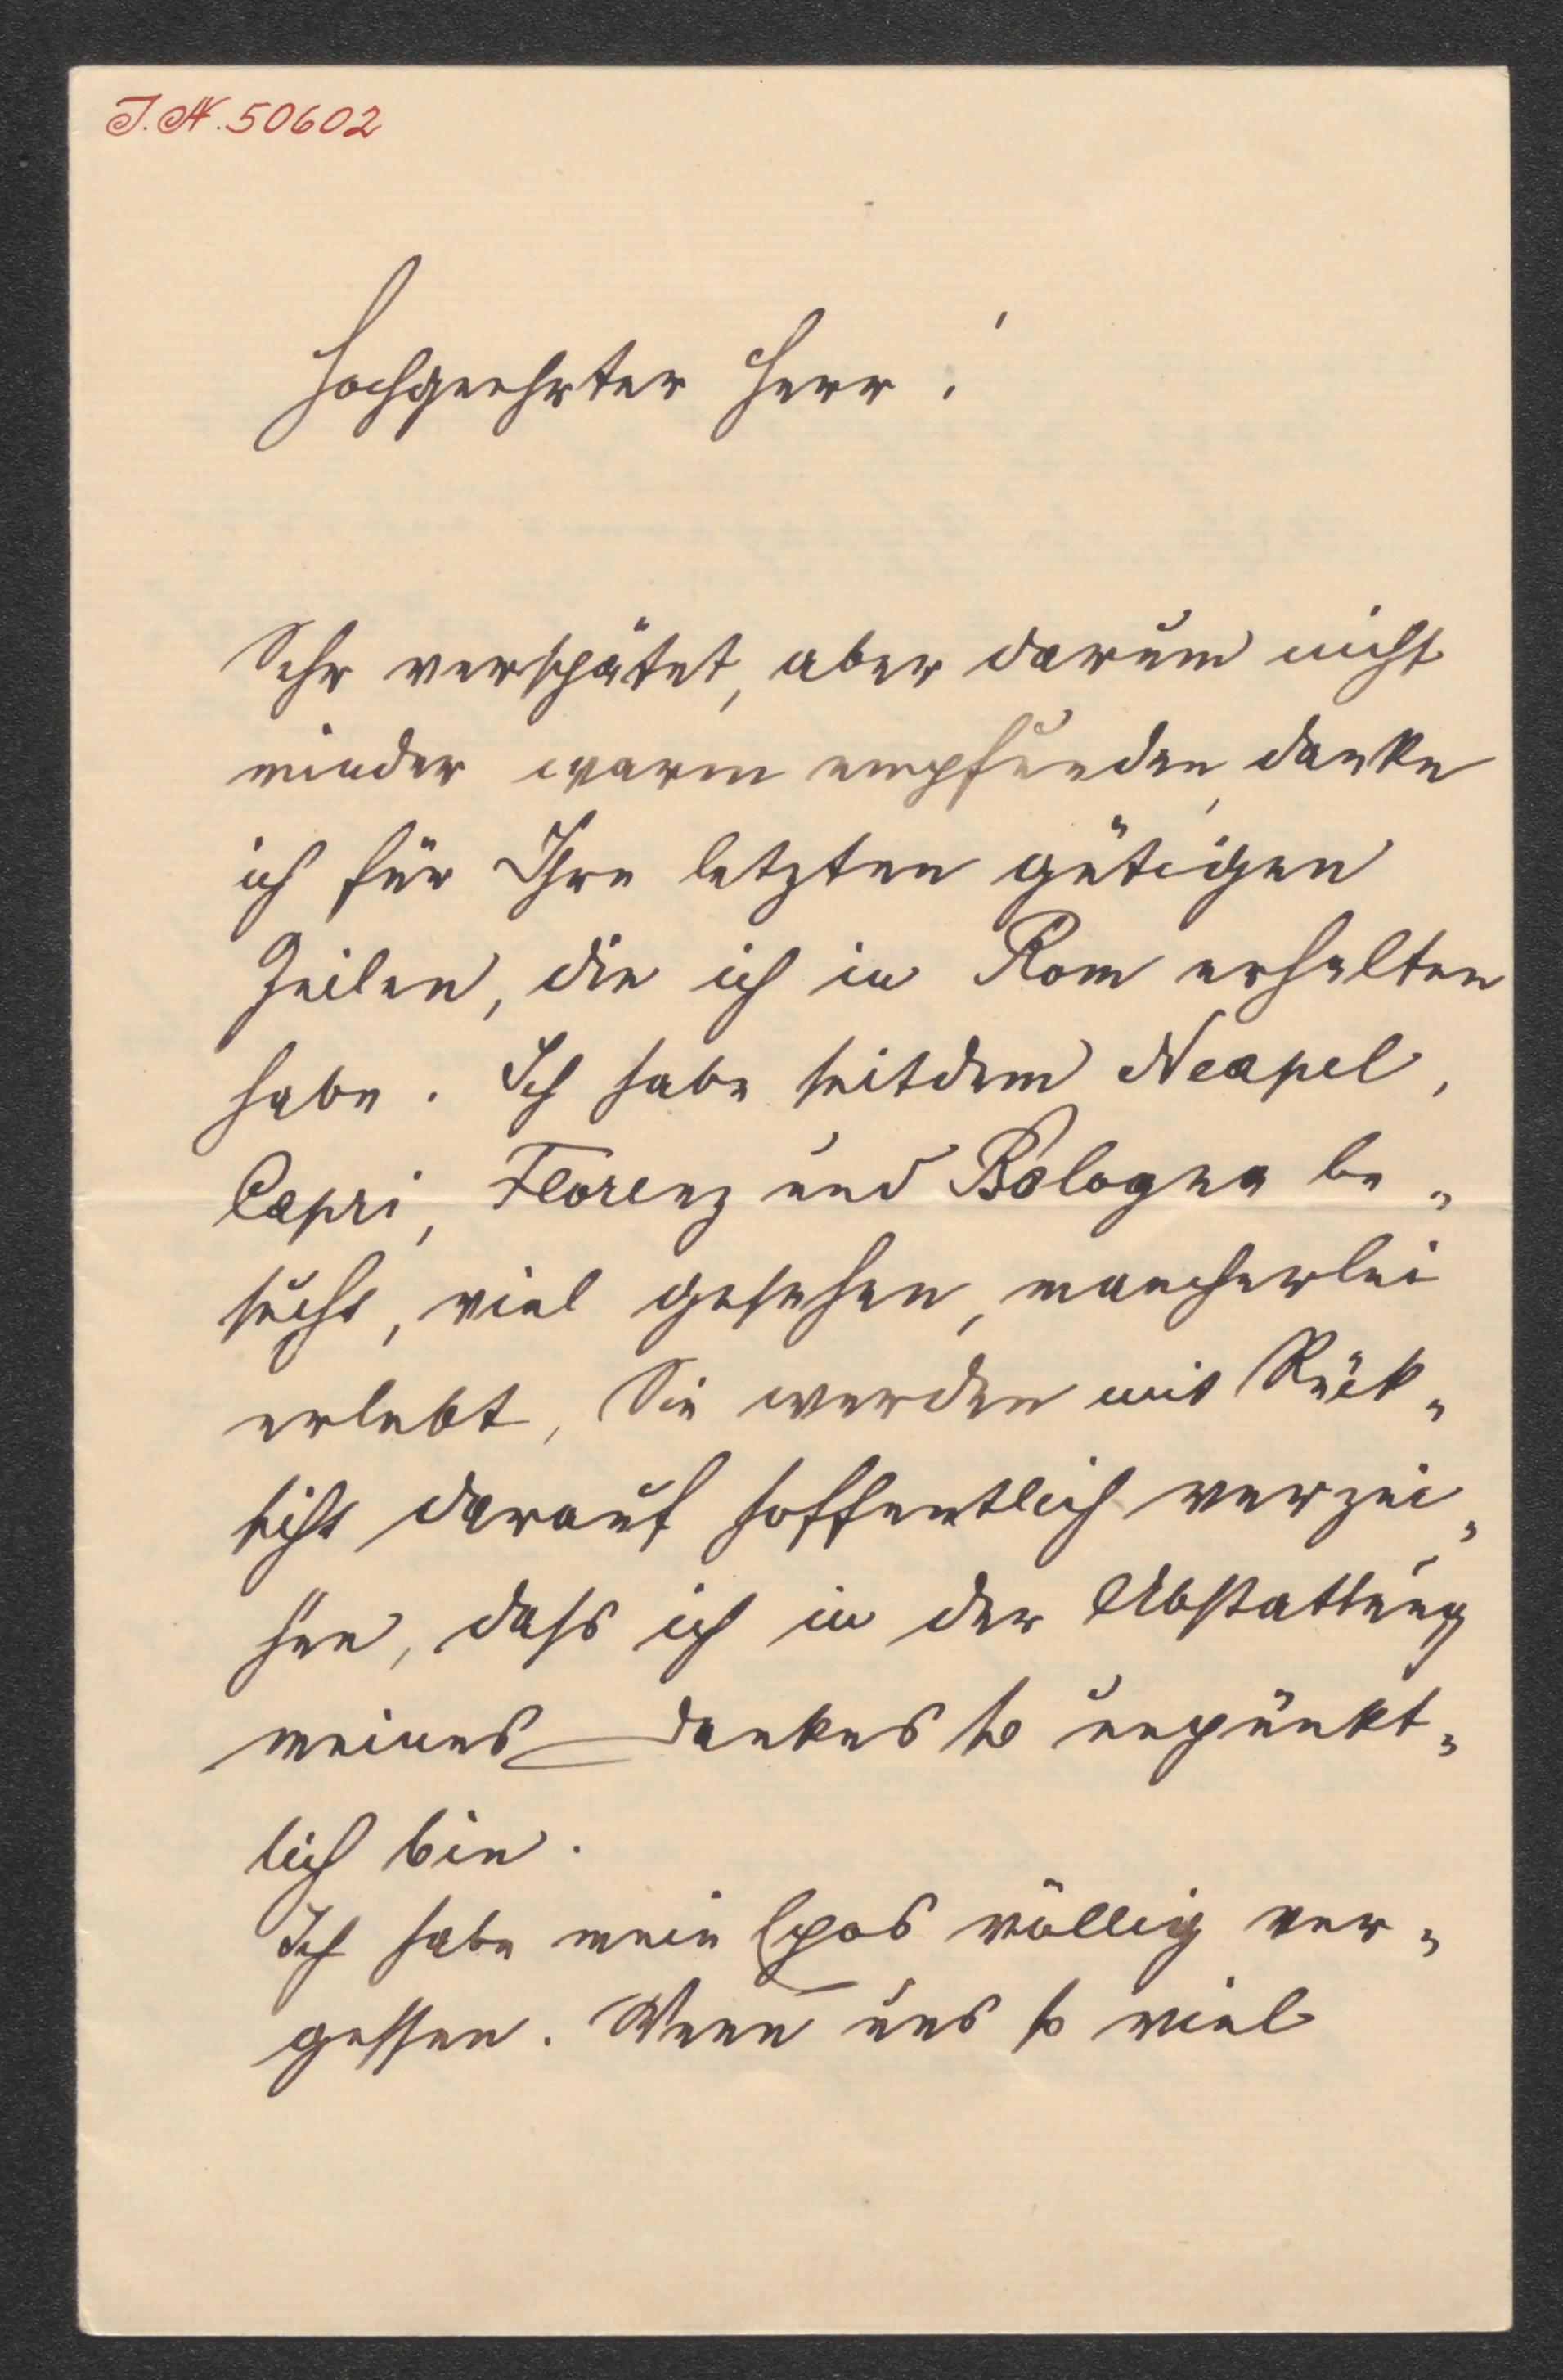 J.N. 50602
Hochgeehrter Herr!
Sehr verspätet, aber darum nicht
minder warm empfunden, danke
ich für Ihre letzten gütigen
Zeilen, die ich in Rom erhalten
habe. Ich habe seitdem Neapel,
Capri, Florenz und Bologna be„
sucht, viel gesehen, mancherlei
erlebt, Sie werden mit Rück„
sicht darauf hoffentlich verzei„
hen, dass ich in der Abstattung
meines Dankes so unpünkt„
lich bin.
Ich habe mein Epos völlig ver„
gessen. Wenn uns so viel